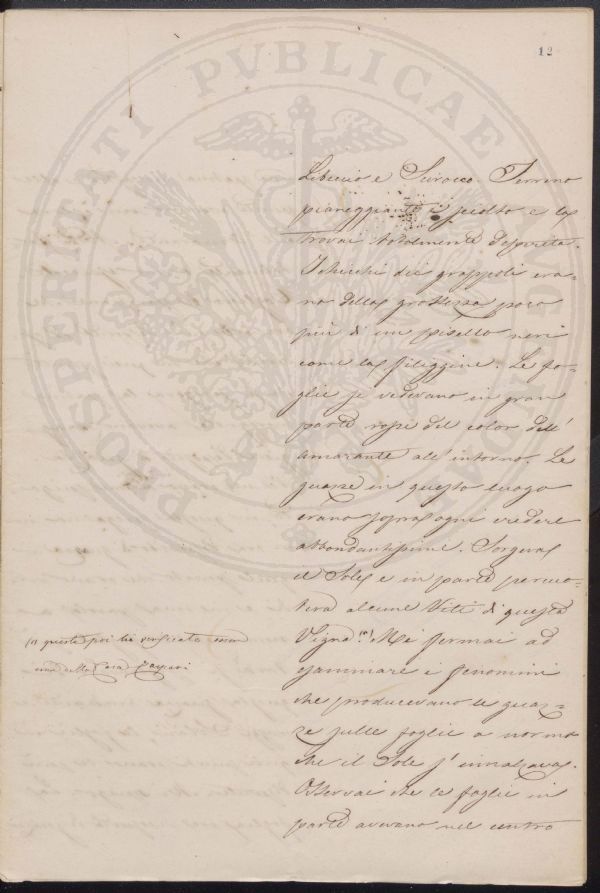 12
PROSPERITATI PVBLICAE AVG
Libeccio e Scirocco. Terreno
pianeggiante e sciolto e la
trovai totalmente desperita.
I chicchi dei grappoli era-
no della grossezza poco
più di un pisello neri
come la filiggine. Le fo-
glie si vedevano in gran
parte rosse del color dell'
amarante all'intorno. Le
guazze in questo luogo
erano sopra ogni credere
abbondantissime. Sorgeva
il Sole e in parte percuo-
teva alcune Viti di questa
Vigna (a) Mi fermai ad
esaminare i fenomini
che producevano le guaz-
ze sulle foglie a norma
che il Sole s'innalzava.
Osservai che le foglie in
parte avevano nel centro
(a) questa poi ho verificato esser
una della Casa